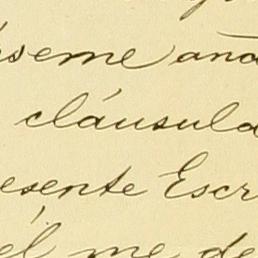 seme aña
cláusula
esente Escr
él me de